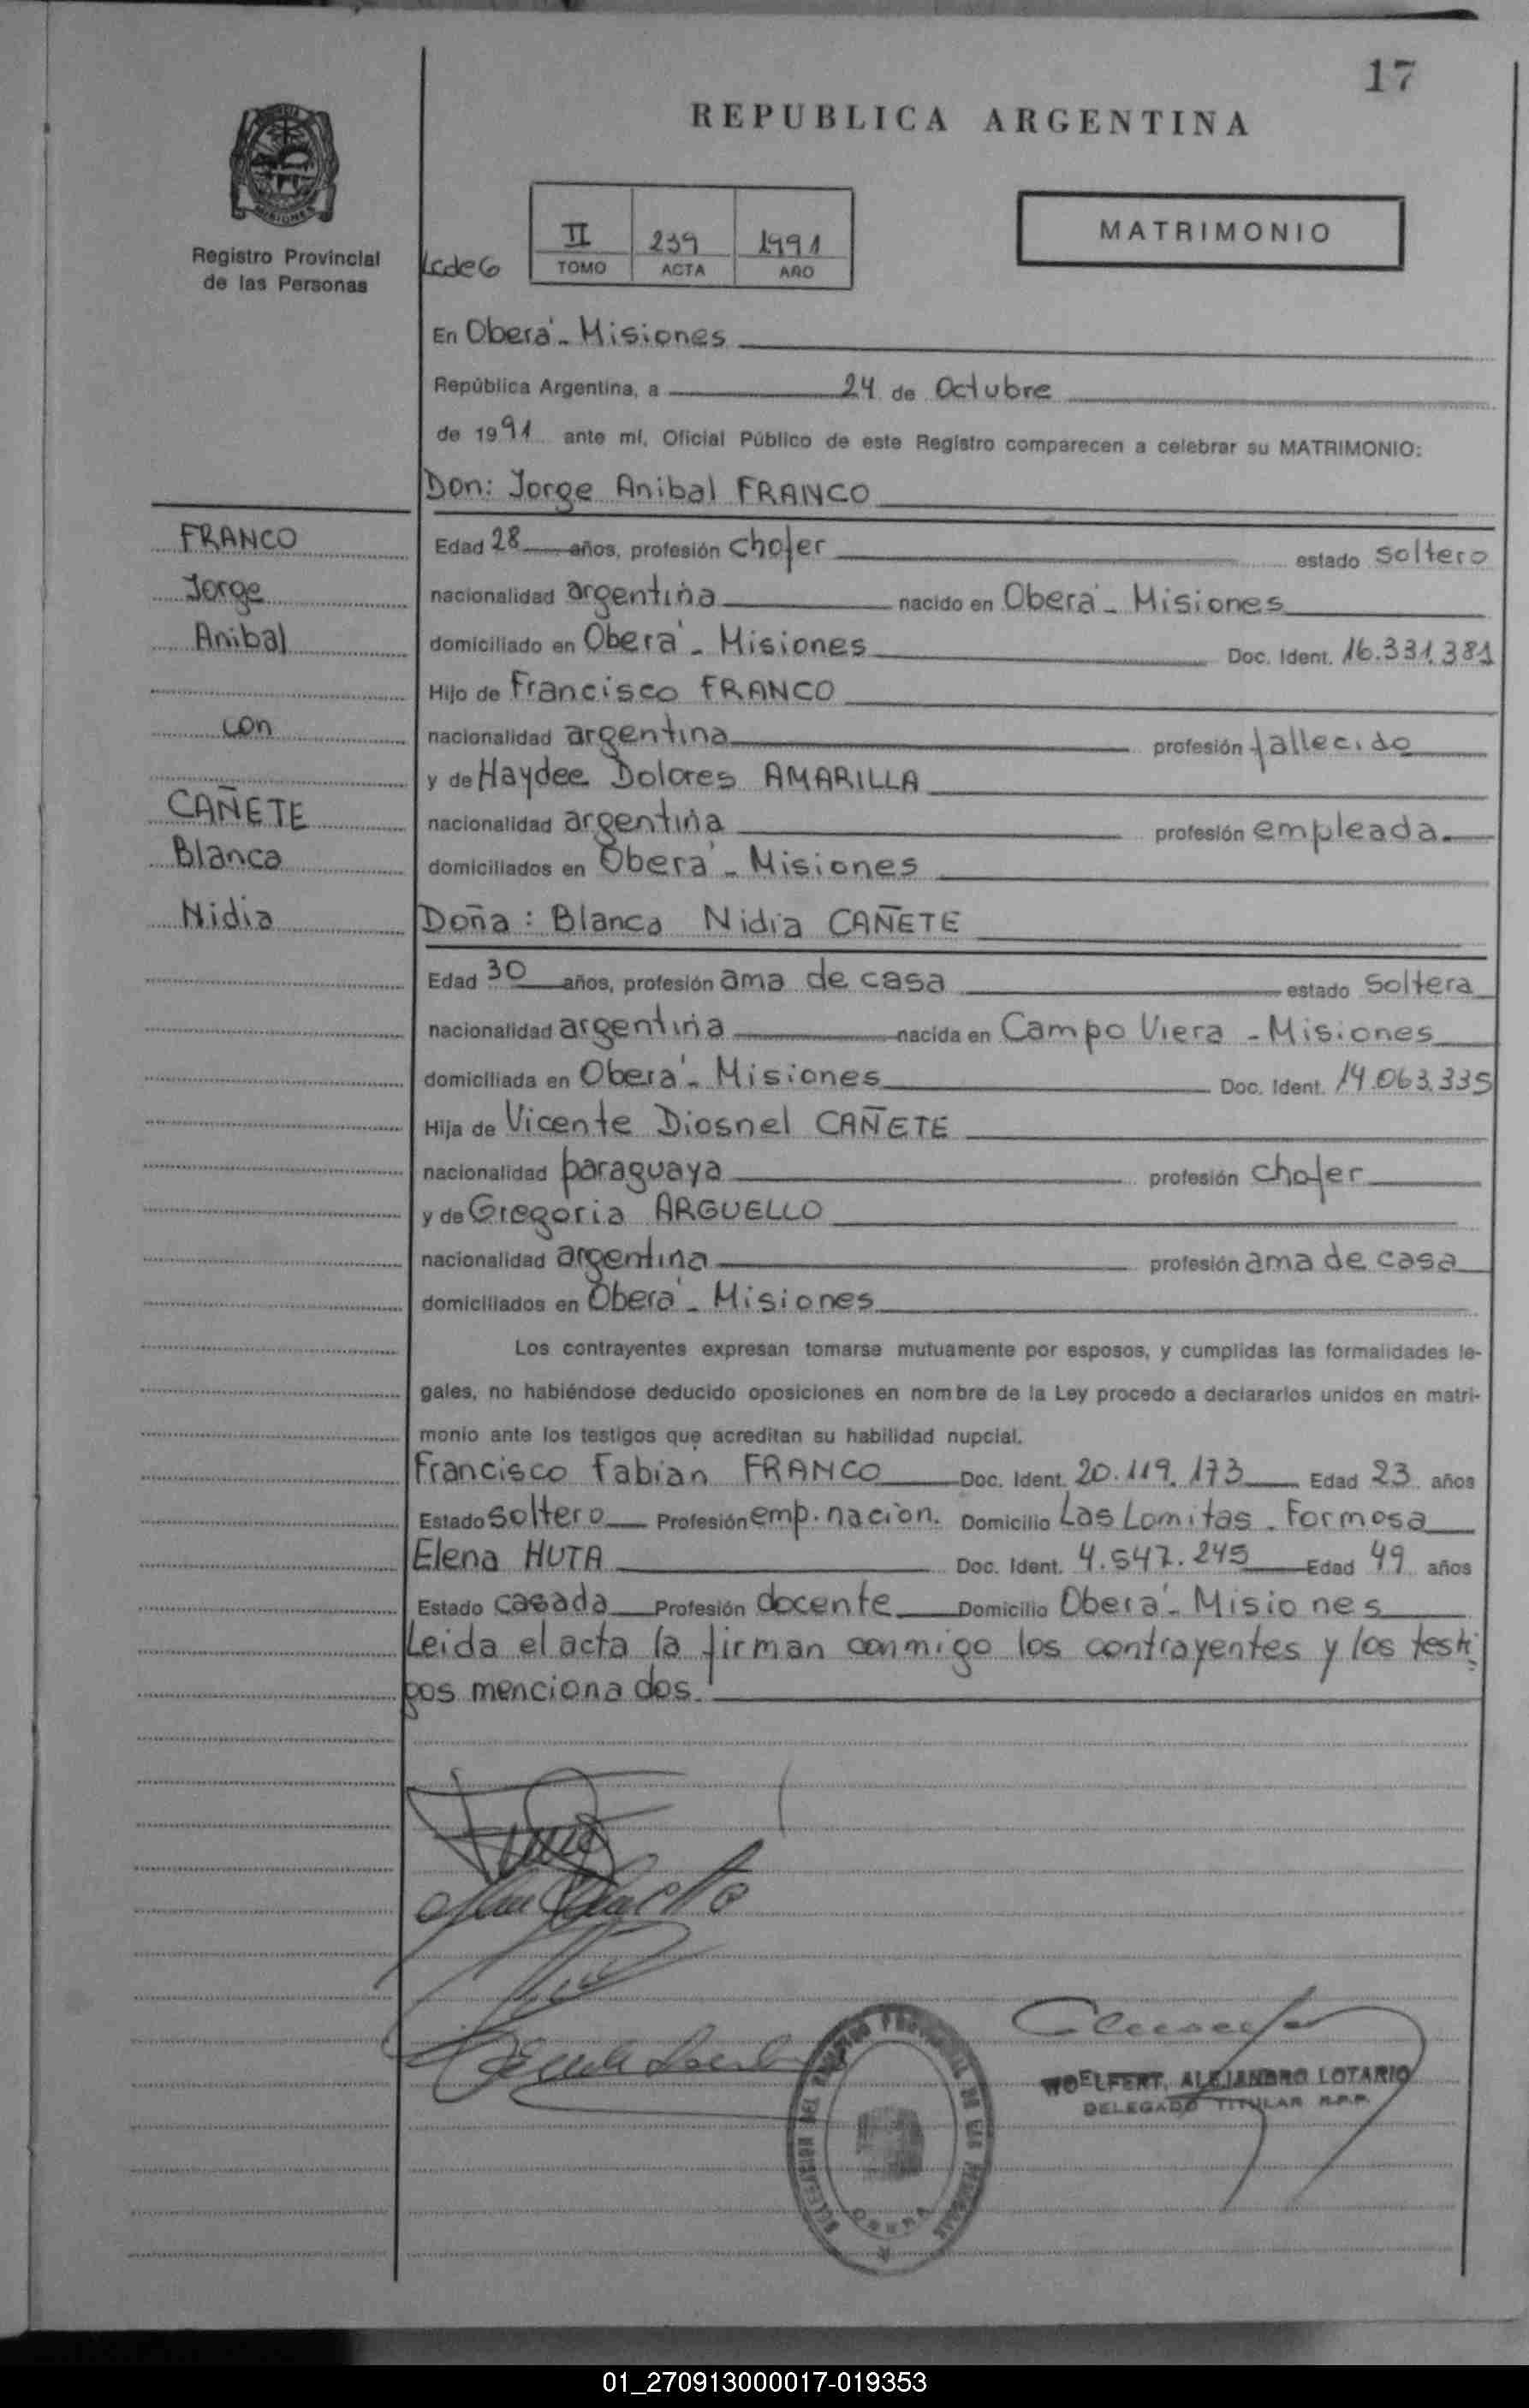 17
REPUBLICA ARGENTINA
MISIONES
Registro Provincial
de las Personas
II 239 1991
TOMO ACTA AÑO
MATRIMONIO
En Oberá - Misiones
República Argentina, a 24 de Octubre
de 1991 ante mí, Oficial Público de este Registro comparecen a celebrar su MATRIMONIO:
Don: Jorge Anibal FRANCO
FRANCO
Jorge
Anibal
con
CAÑETE
Blanca
Nidia
Edad 28 años, profesión chofer estado soltero
nacionalidad argentina nacido en Oberá - Misiones
domiciliado en Oberá - Misiones Doc. Ident. 16.331.381
Hijo de Francisco FRANCO
nacionalidad argentina profesión fallecido
y de Haydee Dolores AMARILLA
nacionalidad argentina profesión empleada.
domiciliados en Oberá - Misiones
Doña: Blanca Nidia CAÑETE
Edad 30 años, profesión ama de casa estado soltera
nacionalidad argentina nacida en Campo Viera - Misiones
domiciliada en Oberá - Misiones Doc. Ident. 14.063.335
Hija de Vicente Diosnel CAÑETE
nacionalidad paraguaya profesión chofer
y de Gregoria ARGUELLO
nacionalidad argentina profesión ama de casa
domiciliados en Oberá - Misiones
Los contrayentes expresan tomarse mutuamente por esposos, y cumplidas las formalidades le-
gales, no habiéndose deducido oposiciones en nombre de la Ley procedo a declararlos unidos en matri-
monio ante los testigos que acreditan su habilidad nupcial.
Francisco Fabian FRANCO Doc. Ident. 20.119.173 Edad 23 años
Estado soltero Profesión emp. nacion. Domicilio Las Lomitas - Formosa
Elena HUTA Doc. Ident. 4.547.245 Edad 49 años
Estado casada Profesión docente Domicilio Oberá - Misiones
Leida el acta la firman conmigo los contrayentes y los testi-
gos mencionados.
WOELFERT, ALEJANDRO LOTARIO
DELEGADO TITULAR R.P.P.
DELEGACION DEL REGISTRO PROVINCIAL DE LAS PERSONAS
OBERA
01_270913000017-019353